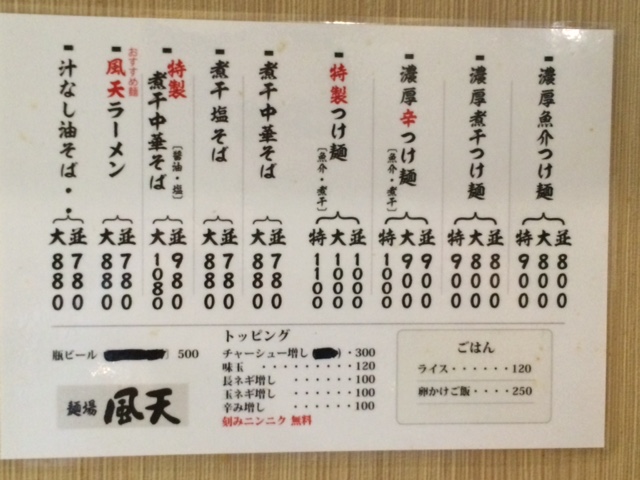 濃厚魚介つけ麺
並 800
大 800
特 900
濃厚煮干つけ麺
並 800
大 800
特 900
濃厚辛つけ麺
〔魚介・煮干〕
並 900
大 900
特 1000
特製つけ麺
〔魚介・煮干〕
並 1000
大 1000
特 1100
煮干中華そば
並 780
大 880
煮干塩そば
並 780
大 880
特製煮干中華そば
〔醤油・塩〕
並 980
大 1080
おすすめ麺
風天ラーメン
並 780
大 880
汁なし油そば・・
並 780
大 880
瓶ビール 500
麺場 風天
トッピング
チャーシュー増し ・300
味玉 ・・・・・・・・・120
長ネギ増し ・・・・・・100
玉ネギ増し ・・・・・・100
辛み増し ・・・・・・・100
刻みニンニク 無料
ごはん
ライス・・・・・・120
卵かけご飯・・・・250